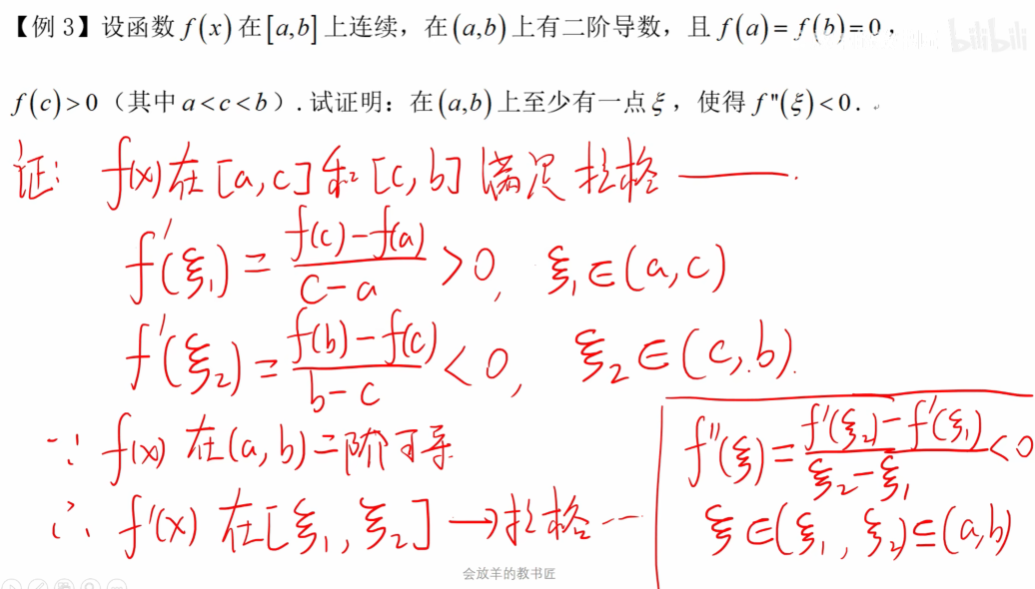 【例 3】设函数 f(x) 在 [a,b] 上连续，在 (a,b) 上有二阶导数，且 f(a)=f(b)=0，
bilibili
f(c)>0（其中 a<c<b）. 试证明：在 (a,b) 上至少有一点 ξ，使得 f"(ξ)<0.
证: f(x)在[a,c]和[c,b]满足拉格——.
f'(ξ₁)=\frac{f(c)-f(a)}{c-a}>0, ξ₁∈(a,c)
f'(ξ₂)=\frac{f(b)-f(c)}{b-c}<0, ξ₂∈(c,b).
∵ f(x) 在(a,b)二阶可导
∴ f'(x) 在[ξ₁,ξ₂]→拉格--
f''(ξ)=\frac{f'(ξ₂)-f'(ξ₁)}{ξ₂-ξ₁}<0
ξ∈(ξ₁,ξ₂)⊆(a,b)
会放羊的教书匠